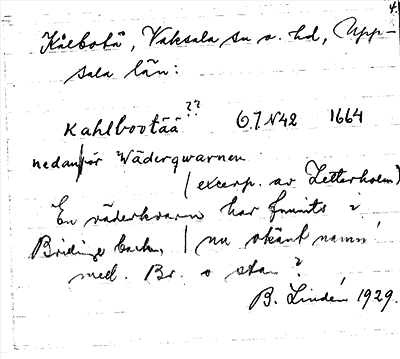 4.
Kålbotå, Vaksala sn o. hd, Upp-
sala län:
??
Kahlbootåå 67N42 1664
nedanför Wäderqwarnen
(excerp. av Zetterholm)
En väderkvarn har funnits i
Bridinge backen, | nu okänt namn
med. Br. o stan?
B. Lindén, 1929.